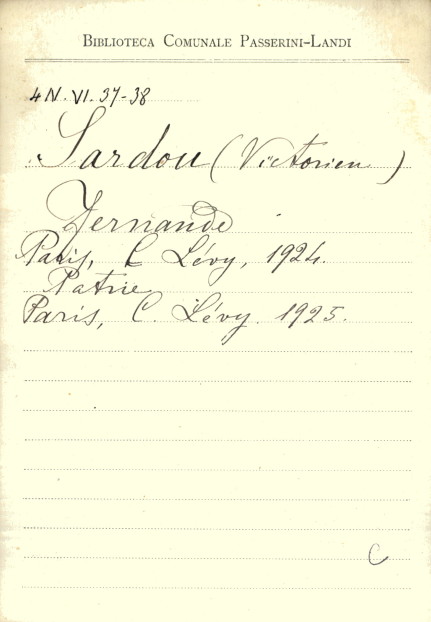 BIBLIOTECA COMUNALE PASSERINI-LANDI
4 N. VI. 37-38
Sardou (Victorien)
Fernande
Paris, C Lévy, 1924.
Patrie
Paris, C. Lévy. 1925.
C